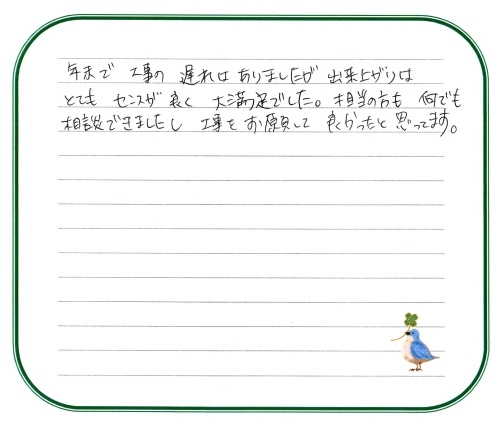 年末で 工事の 遅れは ありましたが 出来上がりは
とても センスが 良く 大満足でした。担当の方も 何でも
相談できましたし 工事を お願いして 良かったと 思ってます。